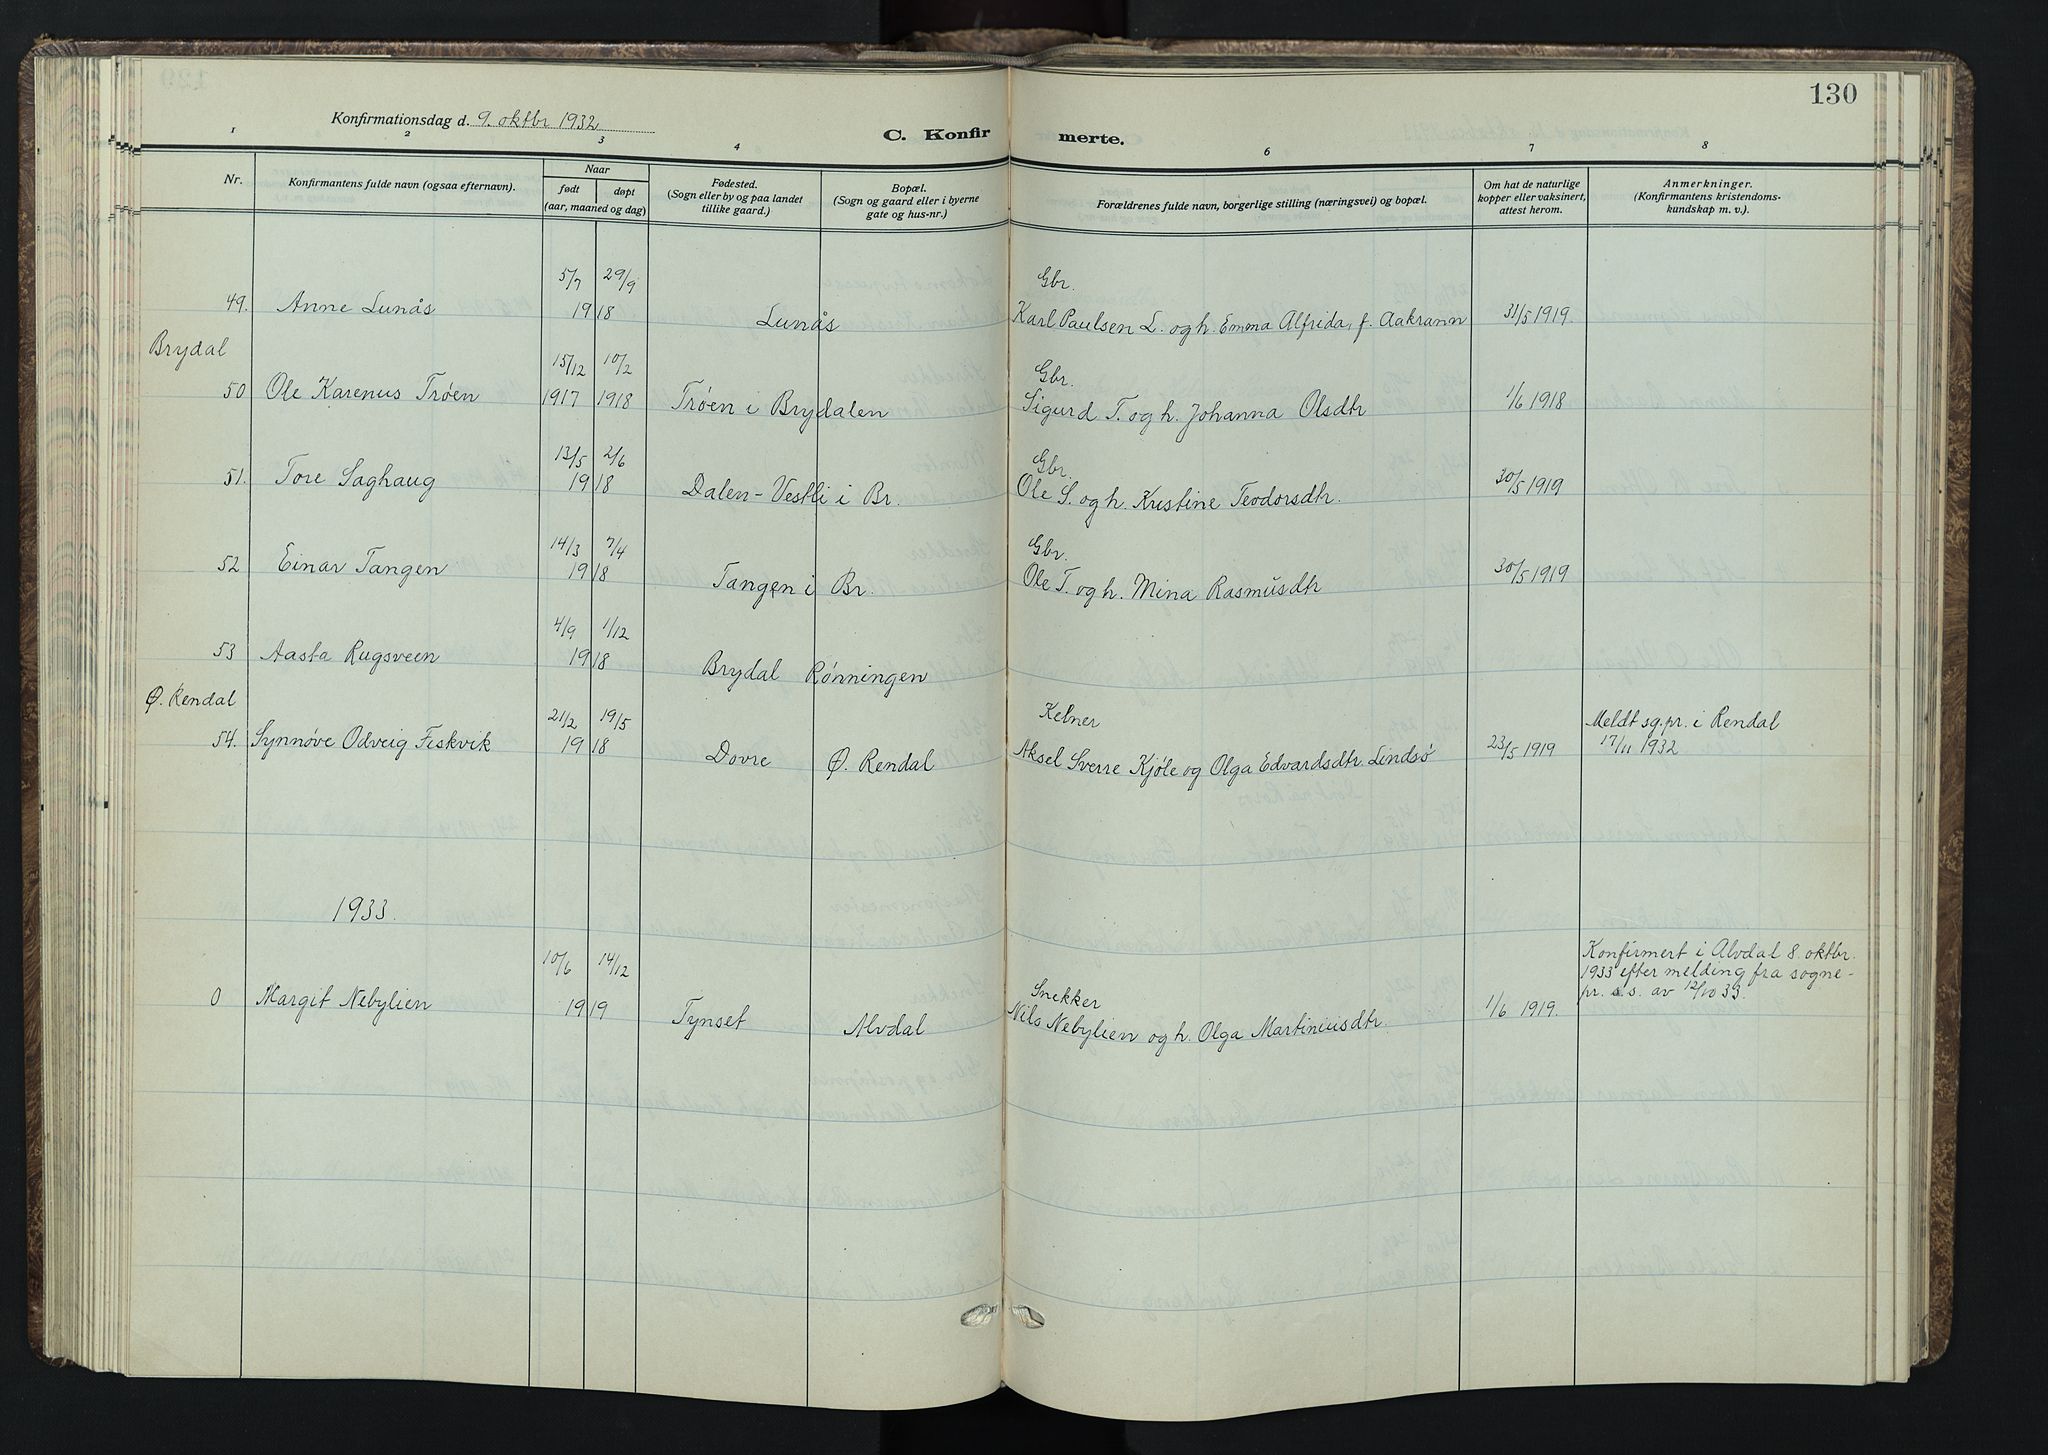 130
Konfirmationsdag d. 9. oktbr 1932
C. Konfirmerte.
1 2 3 4 6 7 8
Nr.
Konfirmantens fulde navn (ogsaa efternavn).
Naar
født døpt
(aar, maaned og dag)
Fødested.
(Sogn eller by og paa landet
tillike gaard.)
Bopæl.
(Sogn og gaard eller i byerne
gate og hus-nr.)
Forældrenes fulde navn, borgerlige stilling (næringsvei) og bopæl.
Om hat de naturlige
kopper eller vaksinert,
attest herom.
Anmerkninger.
(Konfirmantens kristendoms-
kundskap m. v.)
5/7 29/9 Gbr.
49. Anne Lunås 1918 Lunås Karl Paulsen L. og h. Emma Alfrida, f. Aakrann 31/5 1919.
Brydal
15/12 10/2 Gbr.
50 Ole Karenus Trøen 1917 1918 Trøen i Brydalen Sigurd T. og h. Johanna Olsdtr 1/6 1918
13/5 2/6 Gbr.
51. Tore Saghaug 1918 Dalen-Vestli i Br. Ole S. og h. Kristine Teodorsdtr. 30/5 1919
14/3 7/4 Gbr.
52 Einar Tangen 1918 Tangen i Br. Ole T. og h. Mina Rasmusdtr 30/5 1919
4/9 1/12
53 Aasta Rugsveen 1918 Brydal Rønningen
Ø. Rendal
21/2 19/5 Kelner Meldt sg.pr. i Rendal
54. Synnøve Odveig Fiskvik 1918 Dovre Ø. Rendal Aksel Sverre Kjøle og Olga Edvardsdtr. Lindsø 23/5 1919 17/11 1932
1933.
10/6 14/12 Snekker Konfirmert i Alvdal 8. oktbr.
1933 efter melding fra sogne-
pr. s. s. av 12/10 33.
0 Margit Nebylien 1919 Tynset Alvdal Nils Nebylien og h. Olga Martiniusdtr. 1/6 1919.